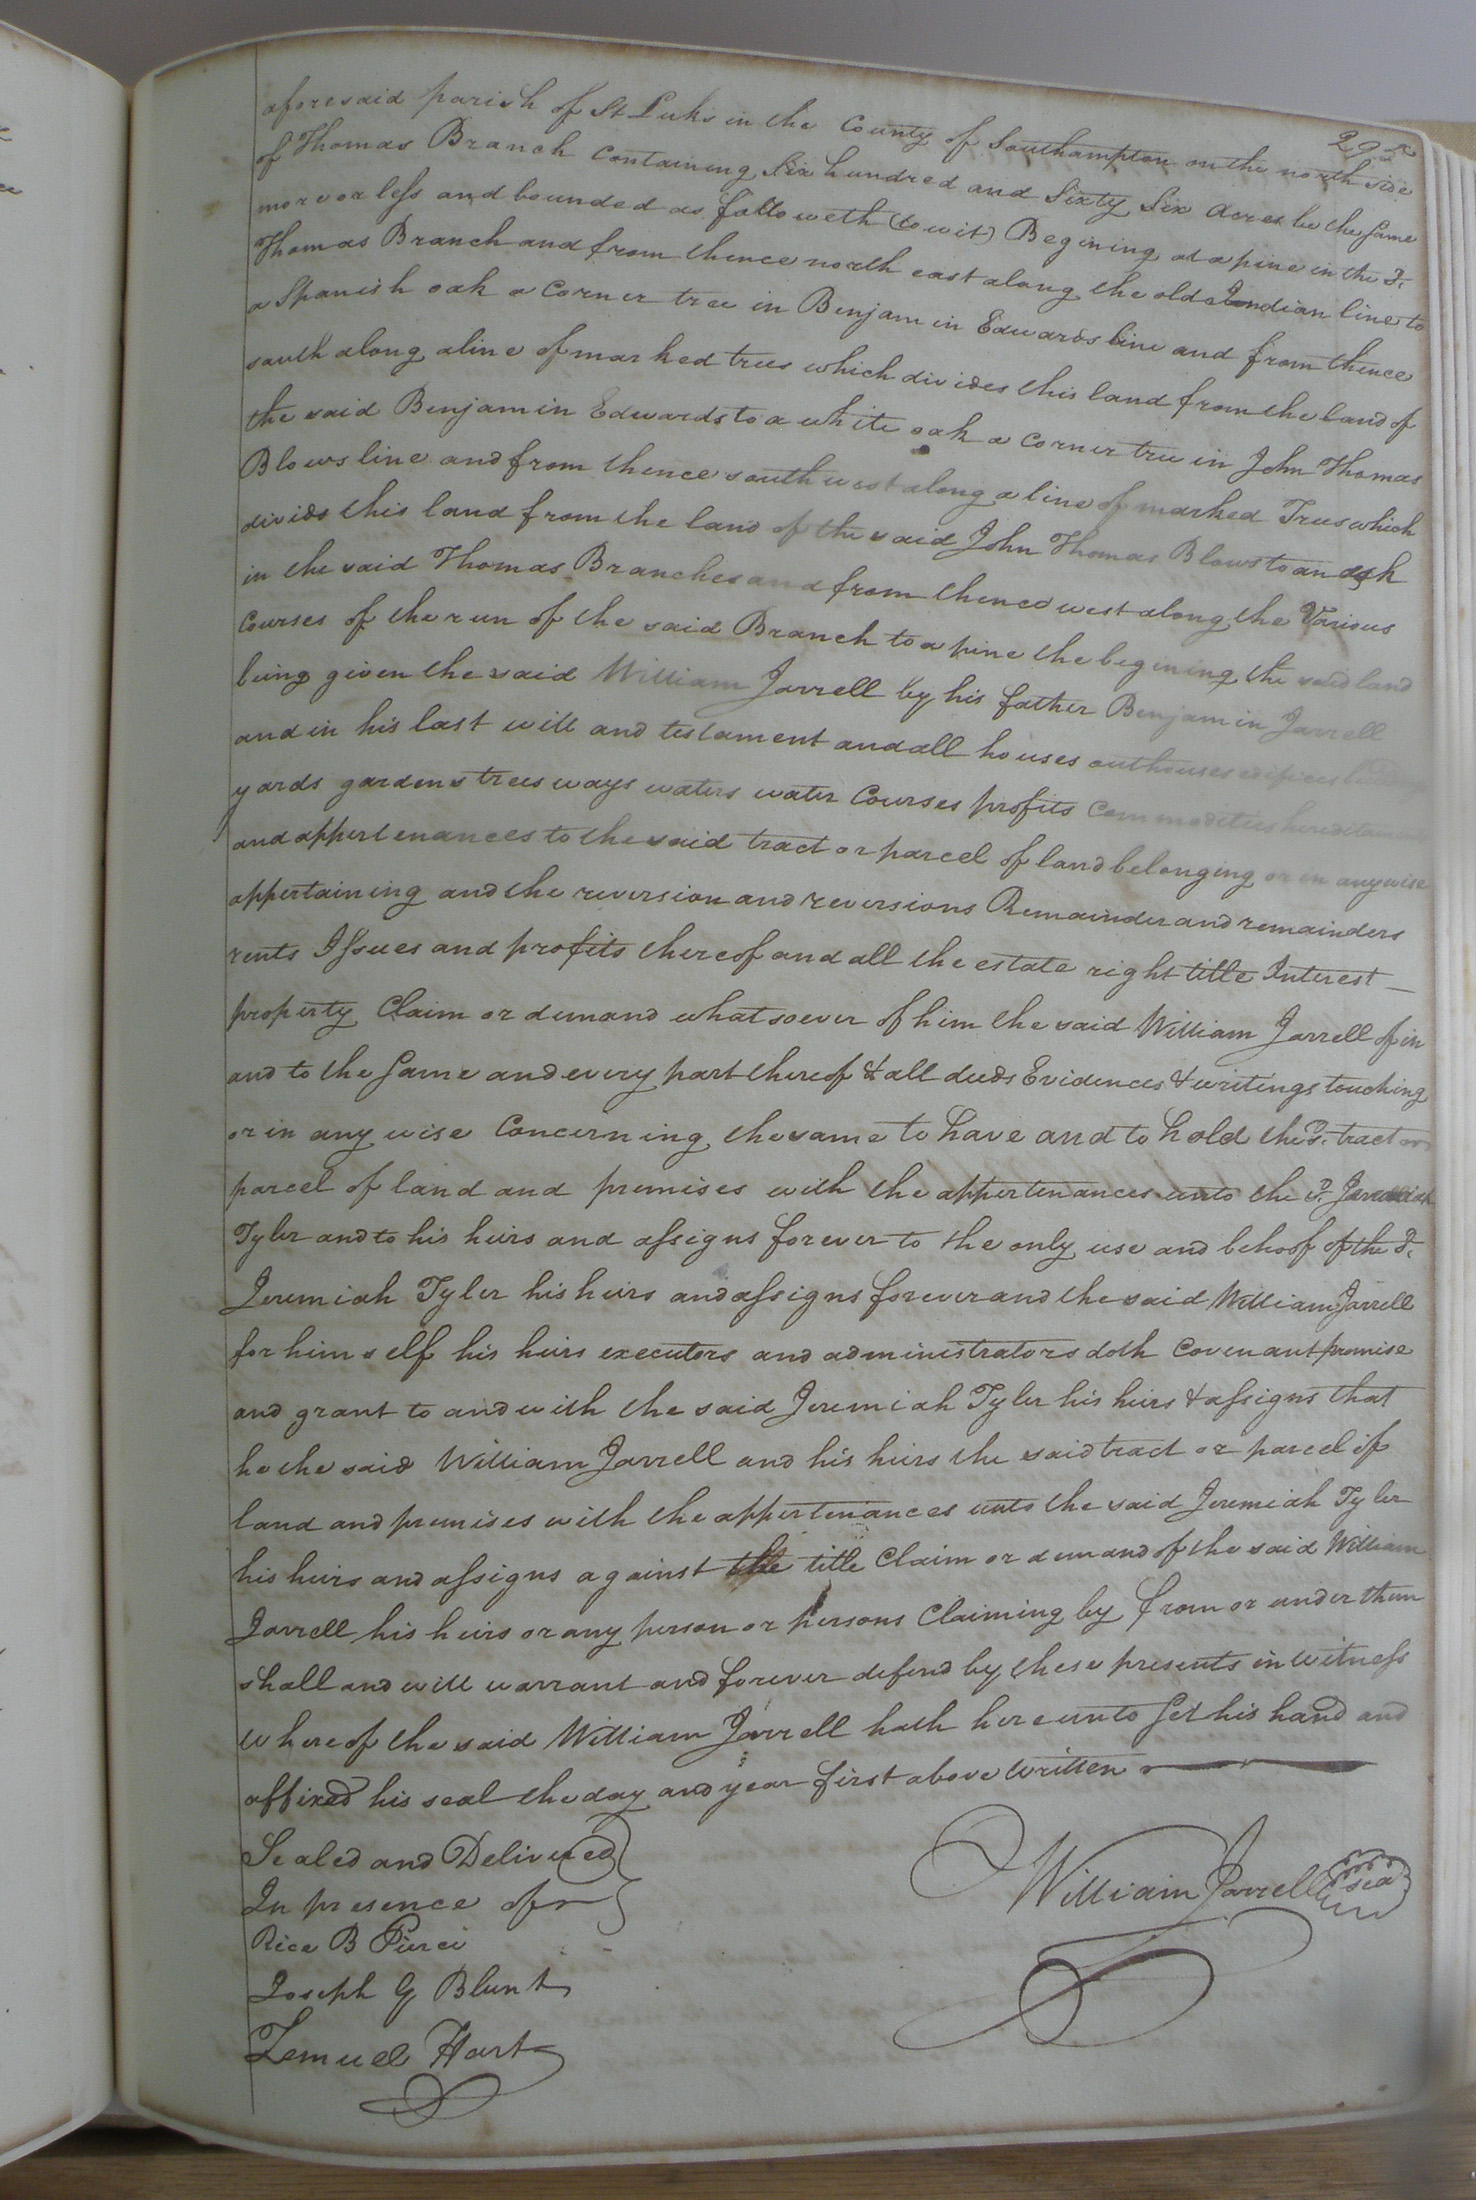 295
aforesaid parish of St Luks in the County of Southampton on the north side
of Thomas Branch Containing Six hundred and Sixty Six Acres be the Same
more or less and bounded as followeth (to wit) Begining at a pine in the Sd.
Thomas Branch and from thence north east along the old Indian line to
a Spanish oak a Corner tree in Benjamin Edwards line and from thence
south along a line of marked trees which divides this land from the land of
the said Benjamin Edwards to a white oak a Corner tree in John Thomas
Blows line and from thence south west along a line of marked Trees which
divids this land from the land of the said John Thomas Blows to an ash
in the said Thomas Branches and from thence west along the Various
Courses of the run of the said Branch to a pine the begining the said land
being given the said William Jarrell by his father Benjamin Jarrell
and in his last will and testament and all houses outhouses edifices
yards gardens trees ways waters water Courses profits Commodities
and appertenances to the said tract or parcel of land belonging or in anywise
appertaining and the reversion and reversions Remainder and remainders
rents Issues and profits thereof and all the estate right title Interest
property Claim or demand whatsoever of him the said William Jarrell of in
and to the Same and every part thereof & all deeds Evidences & writings touching
or in any wise Concerning the same to have and to hold the sd. tract or
parcel of land and premises with the appertenances unto the sd. Jeremiah
Tyler and to his heirs and assigns forever to the only use and behoof of the Sd.
Jeremiah Tyler his heirs and assigns forever and the said William Jarrell
for himself his heirs executors and administrators doth Covenant promise
and grant to and with the said Jeremiah Tyler his heirs & assigns that
he the said William Jarrell and his heirs the said tract or parcel of
land and premises with the appertenances unto the said Jeremiah Tyler
his heirs and assigns against the title Claim or demand of the said William
Jarrell his heirs or any person or persons Claiming by from or under them
shall and will warrant and forever defend by these presents in witness
whereof the said William Jarrell hath hereunto Set his hand and
affixed his seal the day and year first above written
Sealed and Delivered
In presence of
William Jarrell seal
Rice B Pierce
Joseph G Blunt
Lemuel Hart